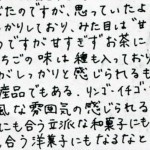 だたのですが、思っていたよ
かりしており、みた目は“甘
のですが甘すぎずお茶に
ちごの味は種も入っており
がしっかりと感じられるも
産品でもある。リンゴ・イチゴ・
風な雰囲気の感じられる
にも合う立派な和菓子にも
も合う洋菓子にもなるなと